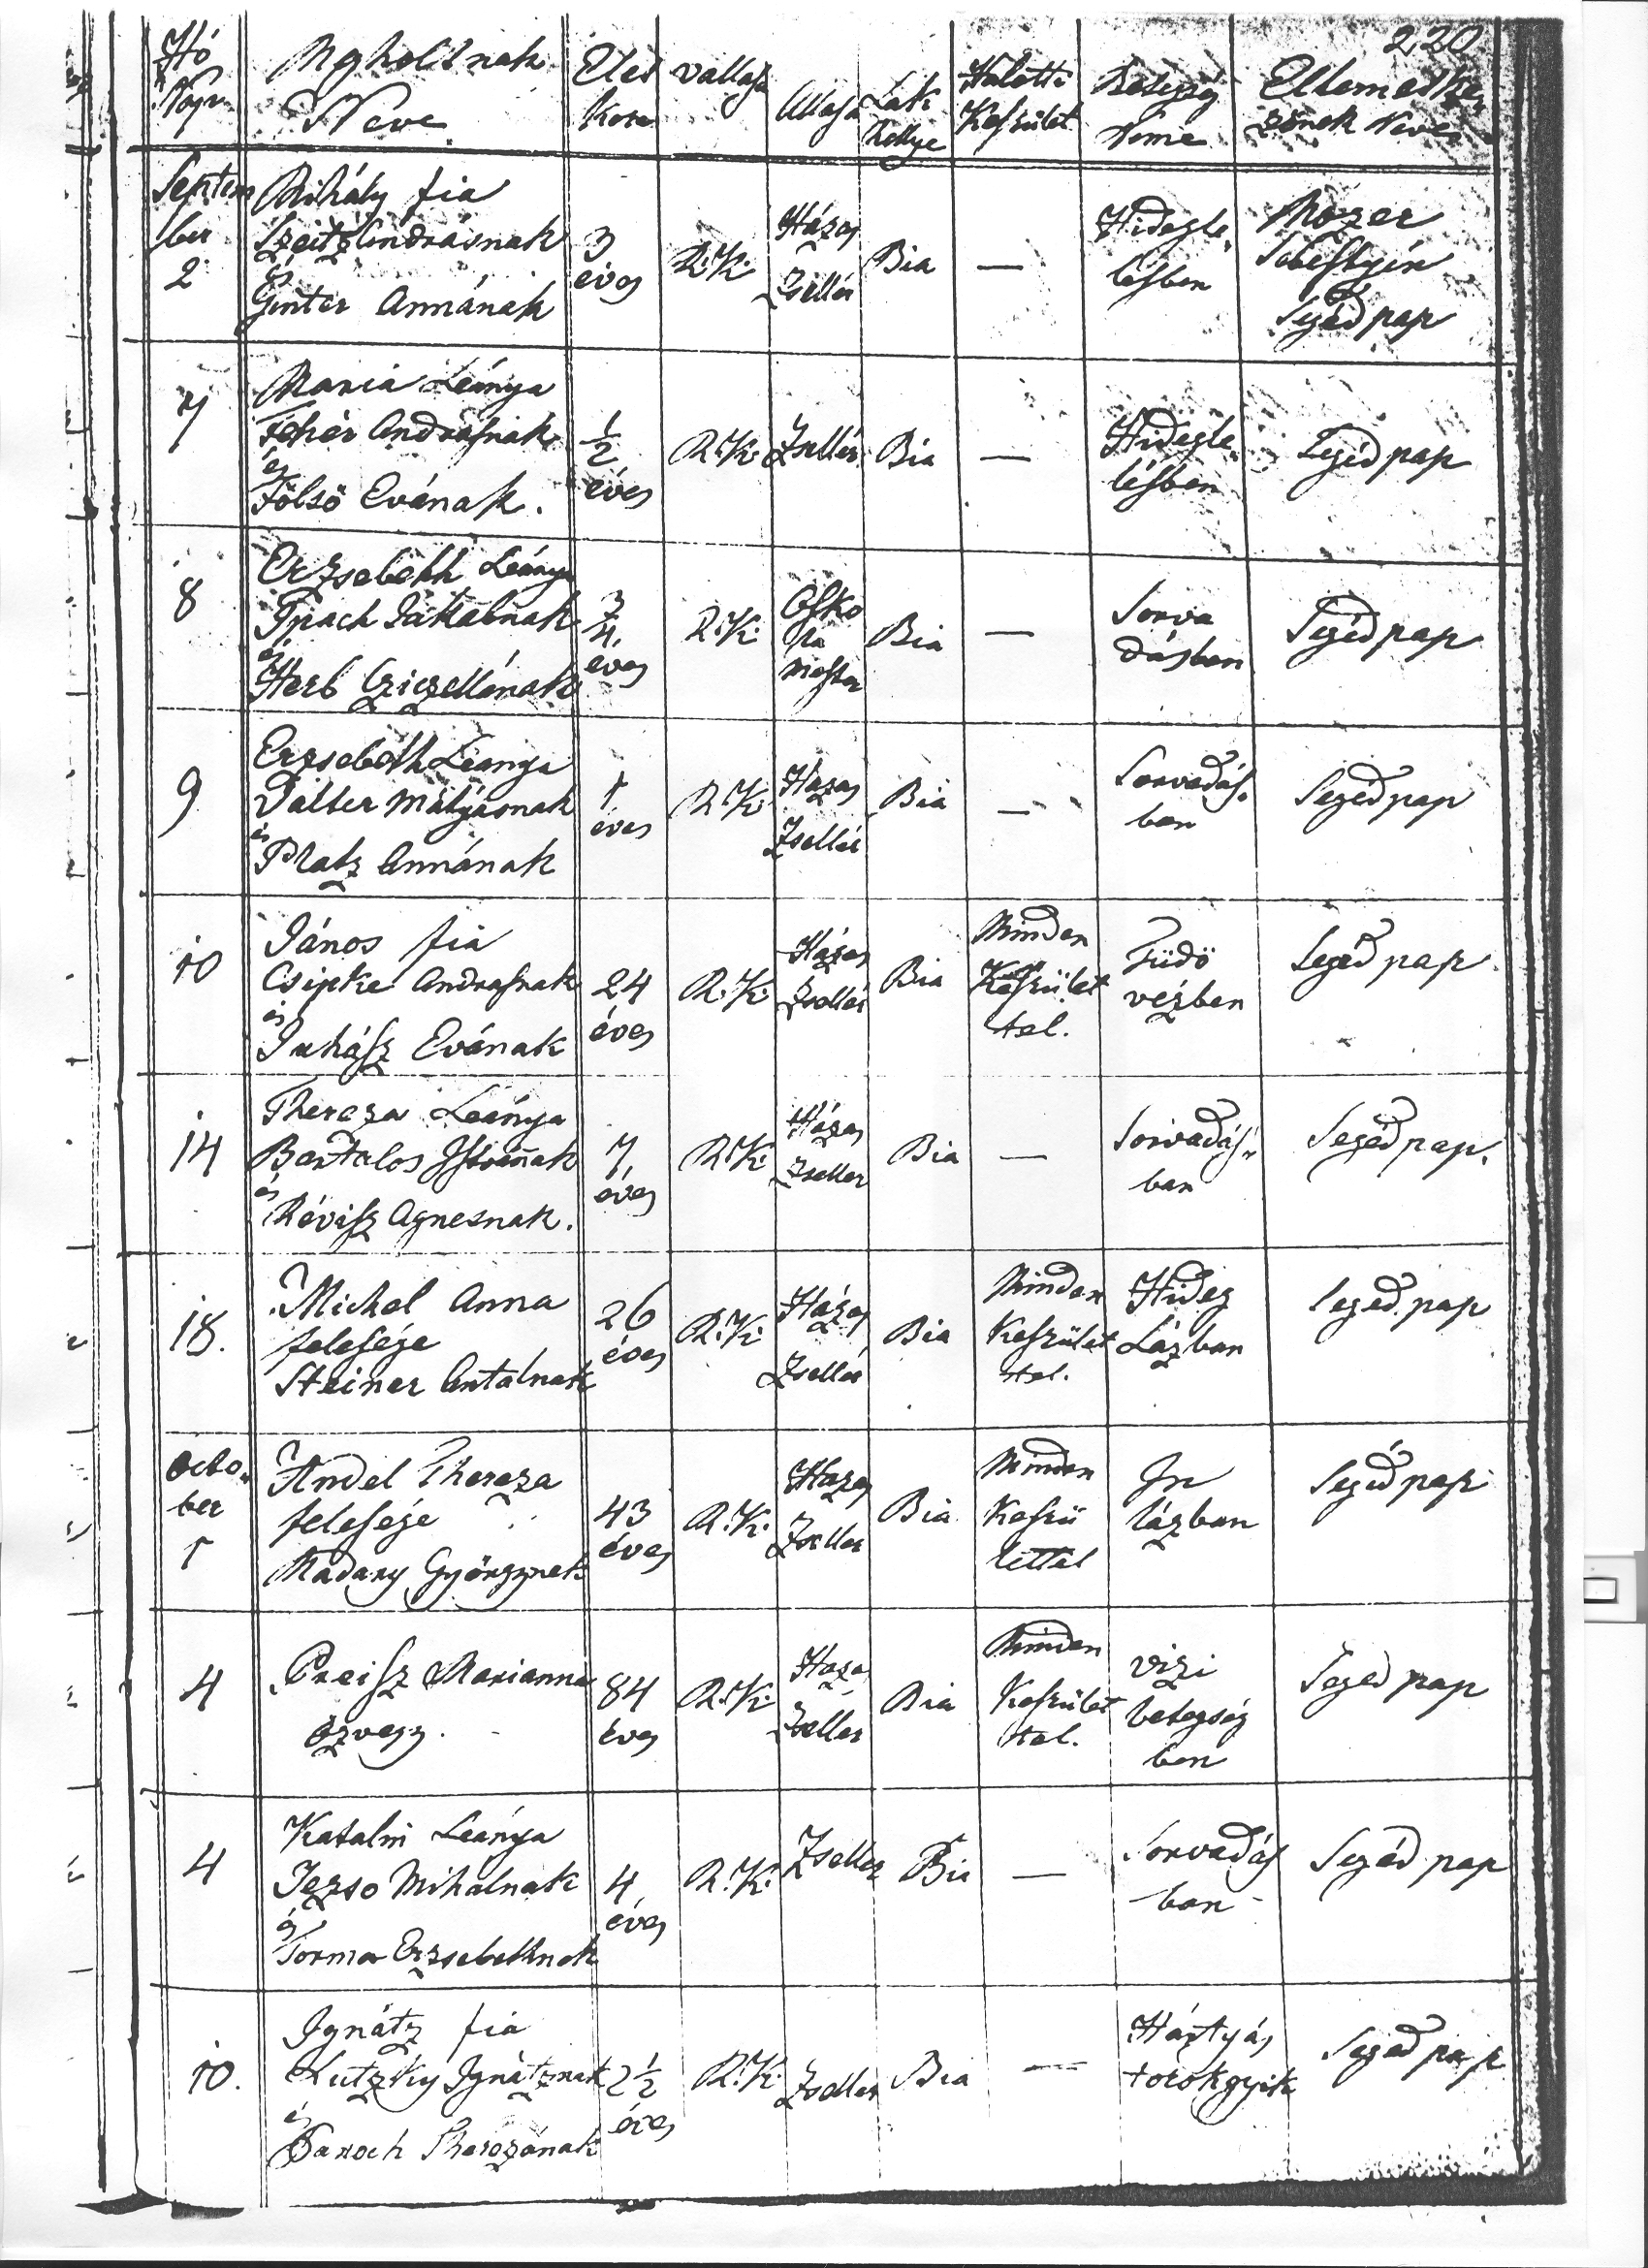 220
Hó Napja
Megholtnak Neve
Élet kora
vallása
Állása
Lak hellye
Halotti Készület
Betegség Neme
Eltemetke„ zőnek Neve
Septem ber 2
Mihály fia
Szeitz Andrásnak
és
Ginter Annának
3 éves
R: K:
Házas Zsellér
Bia
—
Hidegle„ lésben
Mozer Sebestyén Segéd pap
7
Maria Leánya
Fehér Andrásnak
és
Fölsö Evának.
1/2 éves
R: K:
Zsellér
Bia
—
Hidegle„ lésben
Segéd pap
8
Erzsebeth Leánya
Jakabnak
és
Herb Cziczellának
3/4 éves
R: K:
Osko la Mester
Bia
—
Sorva dásban
Segéd pap
9
Erzsebeth Leanya
Valter Mátyásnak
és
Pratz Annának
1 éves
R: K:
Házas Zsellér
Bia
—
Sorvadás„ ban
Segéd pap
10
János fia
Csipke Andrásnak
és
Juhász Evának
24 éves
R: K:
Házas Zsellér
Bia
Minden Készület tel.
Tüdö vészben
Segéd pap
14
Thereza Leánya
Bartalos Istvannak
és
Révisz Agnesnak.
7 éves
R: K:
Házas Zseller
Bia
—
Sorvadás„ ban
Segéd pap.
18.
Michel Anna
felesége
Steiner Antalnak
26 éves
R: K:
Házas Zsellér
Bia
Minden Készület tel.
Hideg Lázban
Segéd pap
Octo„ ber 1
Andel Thereza
felesége
Madary Györgynek
43 éves
R: K:
Házas Zseller
Bia
Minden Készü lettel
In lázban
Segéd pap
4
Preisz Marianna
özvegy.
84 éves
R: K:
Haza s Zsellér
Bia
Minden Készület tel.
vizi betegség ben
Segéd pap
4
Katalin Leánya
Jezso Mihalnak
és
Torma Erzsebethnek
4 éves
R: K:
Zseller
Bia
—
Sorvadás ban
Segéd pap
10.
Ignátz fia
Lutzky Ignátznak
és
Theresának
2 1/2 éves
R: K:
Zseller
Bia
—
Hártyás torokgyik
Segéd pap